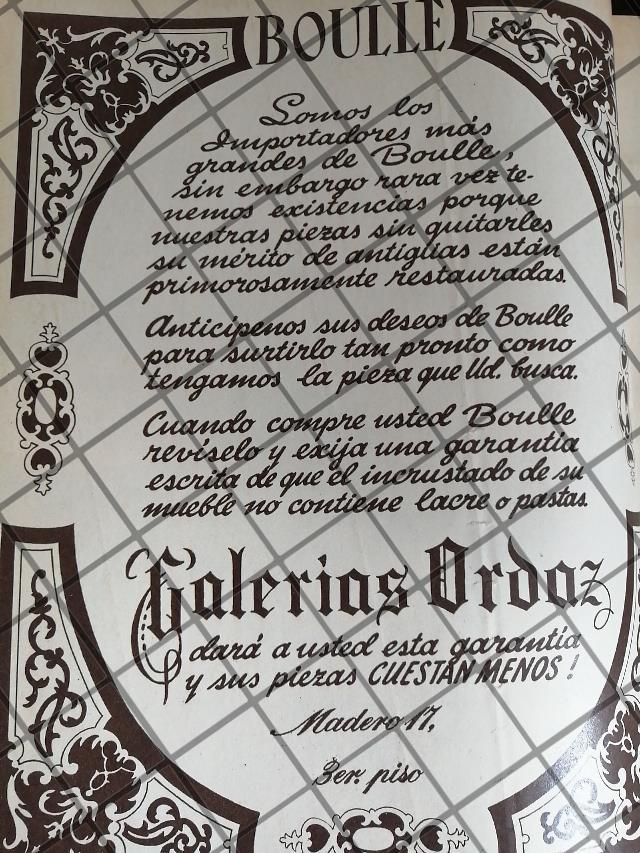 BOULLE
Somos los
Importadores más
grandes de Boulle,
sin embargo rara vez te-
nemos existencias porque
nuestras piezas sin quitarles
su mérito de antigüas están
primorosamente restauradas.
Anticípenos sus deseos de Boulle
para surtirlo tan pronto como
tengamos la pieza que Ud. busca.
Cuando compre usted Boulle
revíselo y exija una garantía
escrita de que el incrustado de su
mueble no contiene lacre o pastas.
Galerias Ordaz
dará a usted esta garantía
y sus piezas CUESTAN MENOS!
Madero 17,
3er. piso